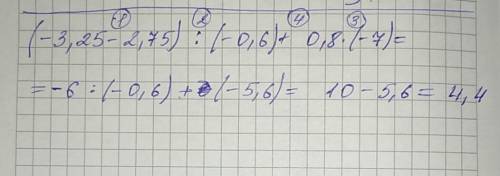 ① ② ④ ③
(-3,25-2,75) : (-0,6)+ 0,8·(-7)=
=-6 ÷ (-0,6) + (-5,6)= 10-5,6= 4,4